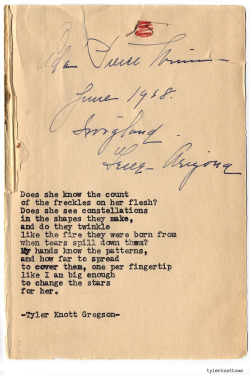 June 1968.
Does she know the count
of the freckles on her flesh?
Does she see constellations
in the shapes they make,
and do they twinkle
like the fire they were born from
when tears spill down them?
My hands know the patterns,
and how far to spread
to cover them, one per fingertip
like I am big enough
to change the stars
for her.
-Tyler Knott Gregson-
tylerknott.com